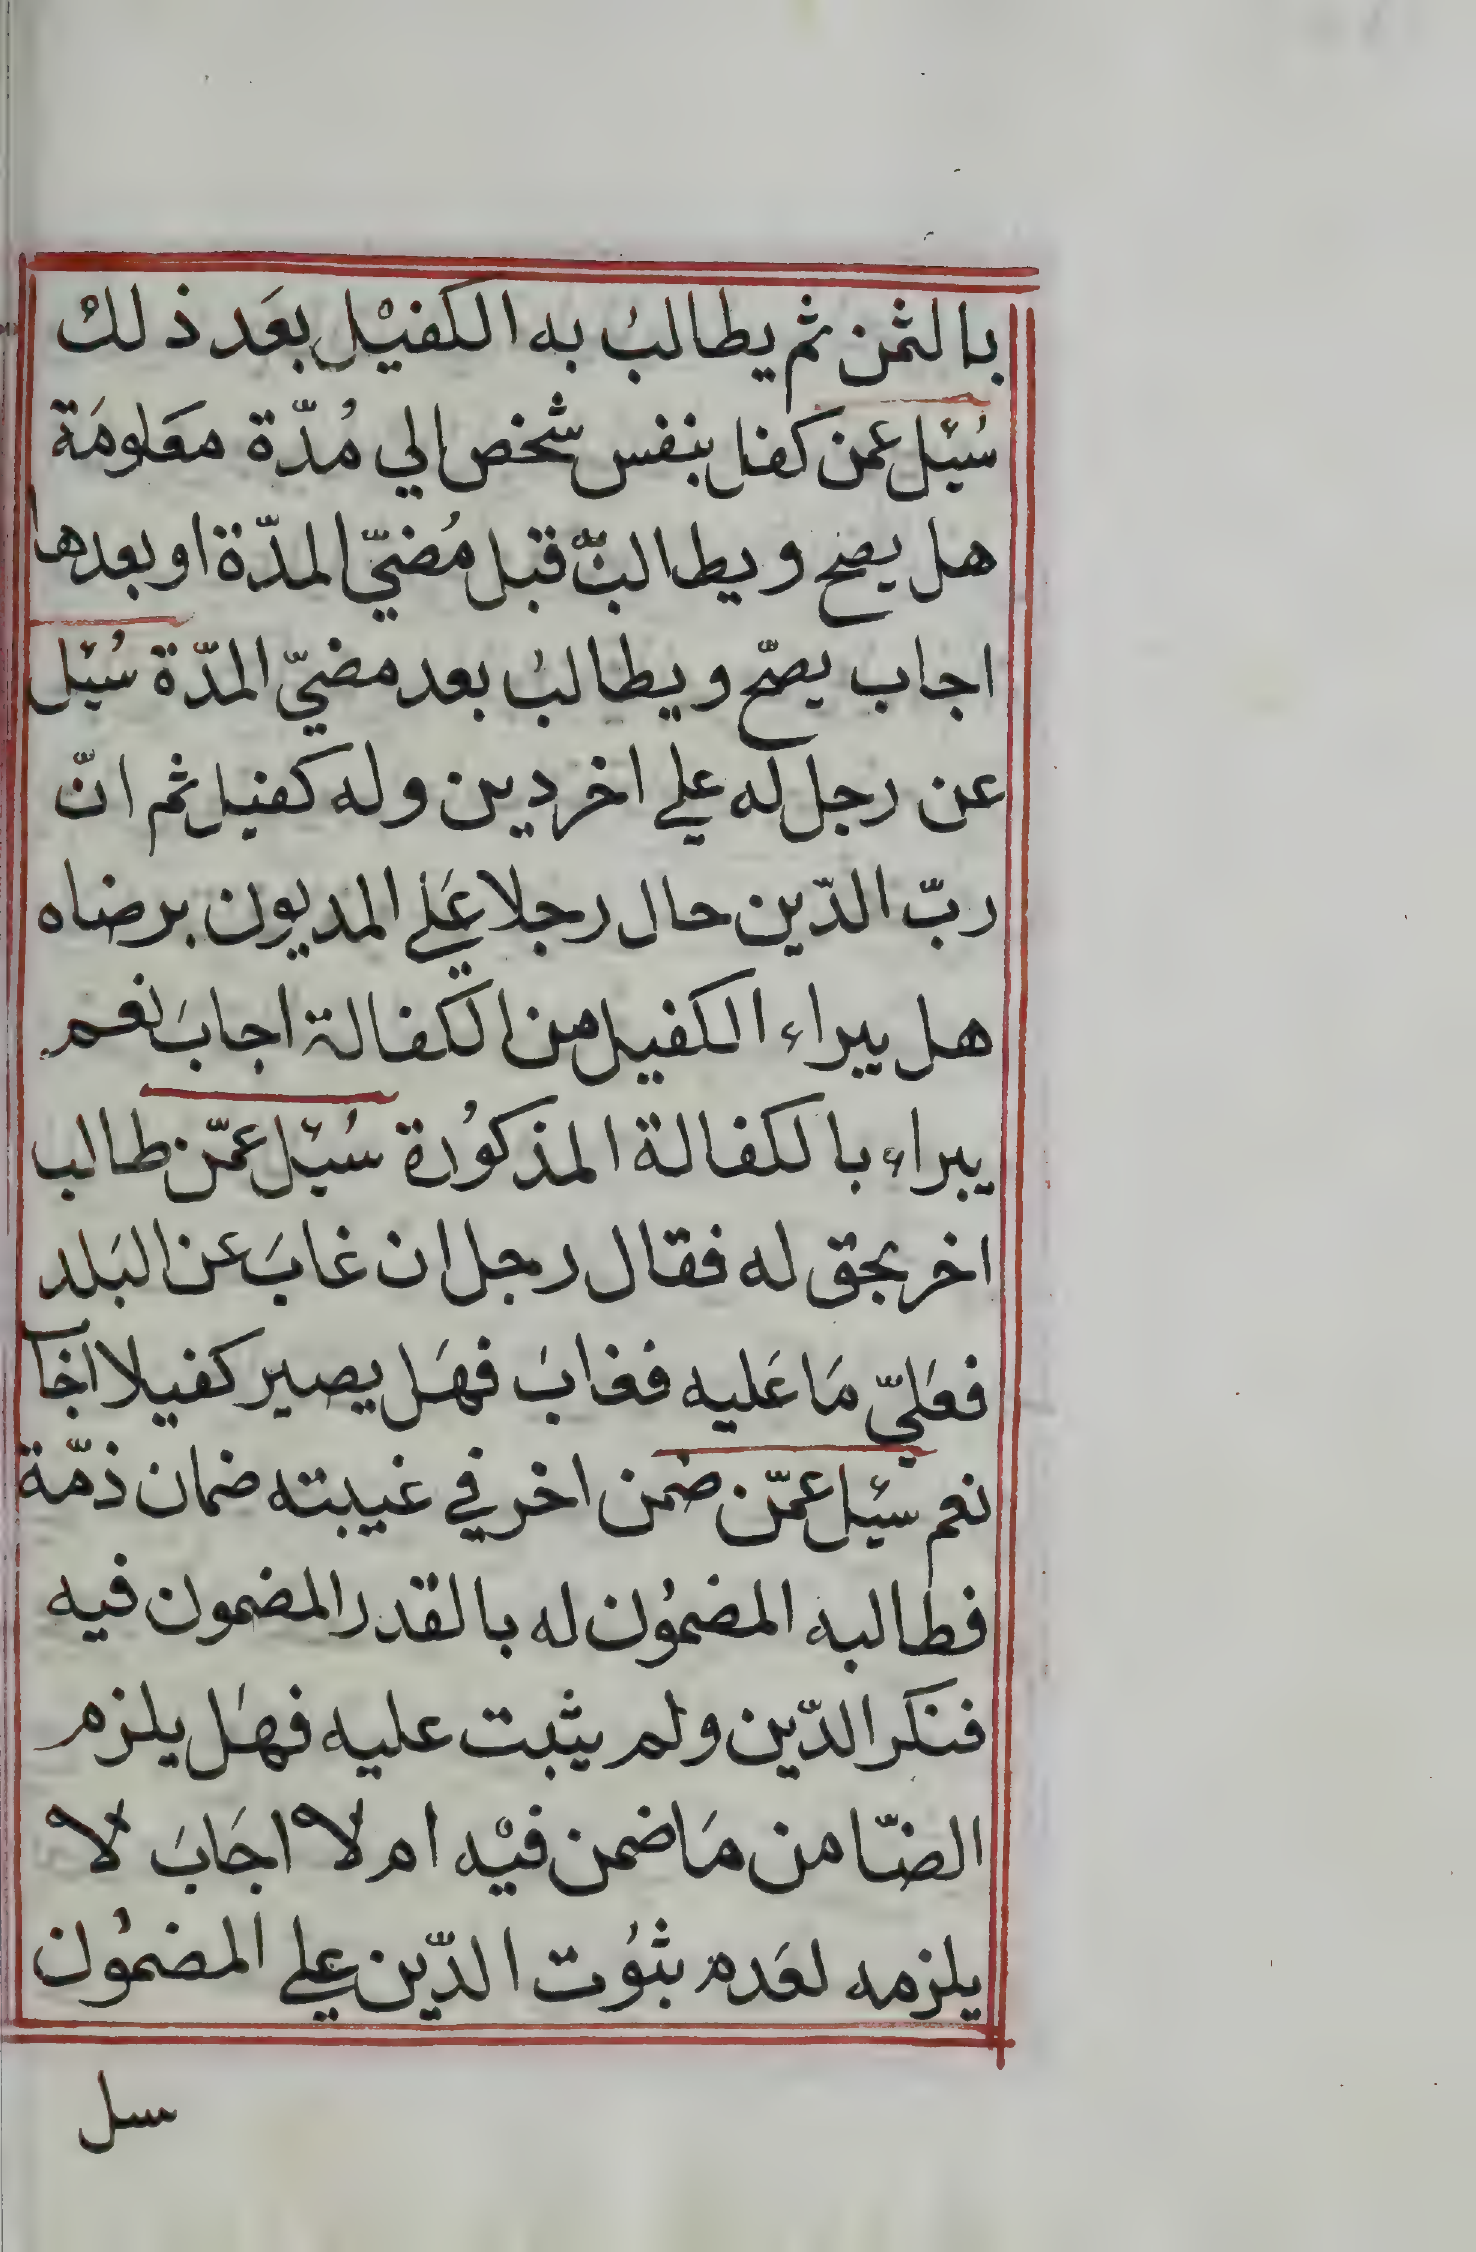 بالثمن ثم يطالبُ به الكفيْل بعَد ذلكْ
سُئل عمن كفل بنفس شخص الي مُدّة معَلومَة
هل يصح ويطالبُ قبل مُضيّ المدّة او بعدها
اجاب يصحّ ويطالبُ بعد مضيّ المدّة سُئل
عن رجل له علي اخر دين وله كفيل ثم انّ
ربّ الدّين حال رجلا عَلي المديون برضاه
هل يبراء الكفيل من الكفالة اجابَ نعم
يبراء بالكفالة المذكوُرة سُئل عمّن طالب
اخر بحق له فقال رجل ان غابَ عن البَلد
فعَليّ مَا عَليه فغابَ فهَل يصير كفيلا اجاب
نعم سئل عمّن ضمن اخر في غيبته ضمان ذمّة
فطالبه المضموُن له بالقدر المضمون فيه
فنكَر الدّين ولم يثبت عليه فهَل يلزم
الضّامن مَا ضمن فيْه ام لا اجَابَ لا
يلزمه لعَدم ثبوُت الدّين علي المضموُن
سل